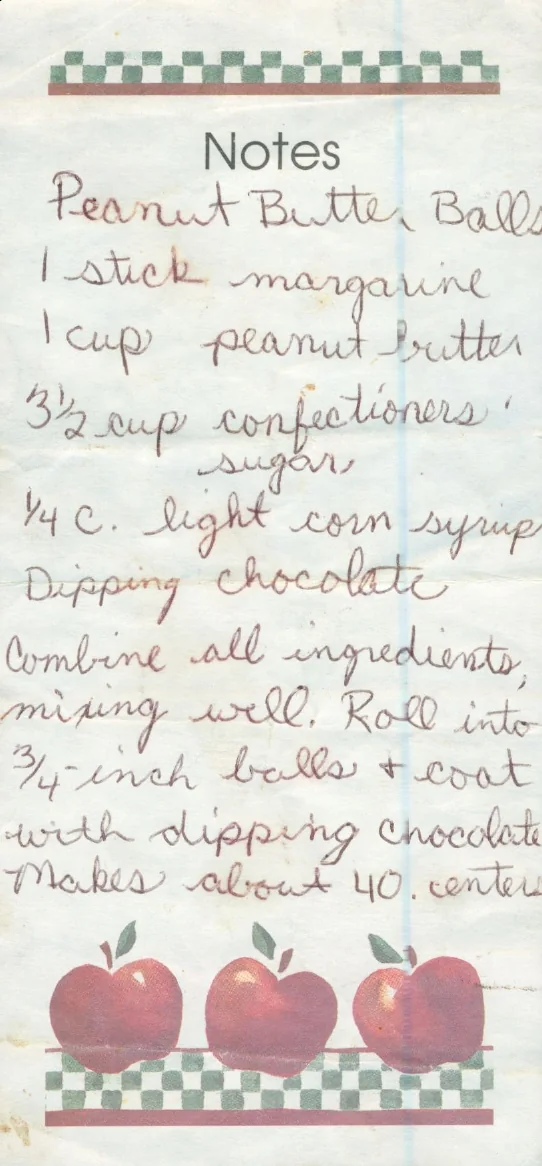 Notes
Peanut Butter Balls
1 stick margarine
1 cup peanut butter
3 1/2 cup confectioners'
sugar
1/4 C. light corn syrup
Dipping chocolate
Combine all ingredients,
mixing well. Roll into
3/4-inch balls + coat
with dipping chocolate
Makes about 40. centers